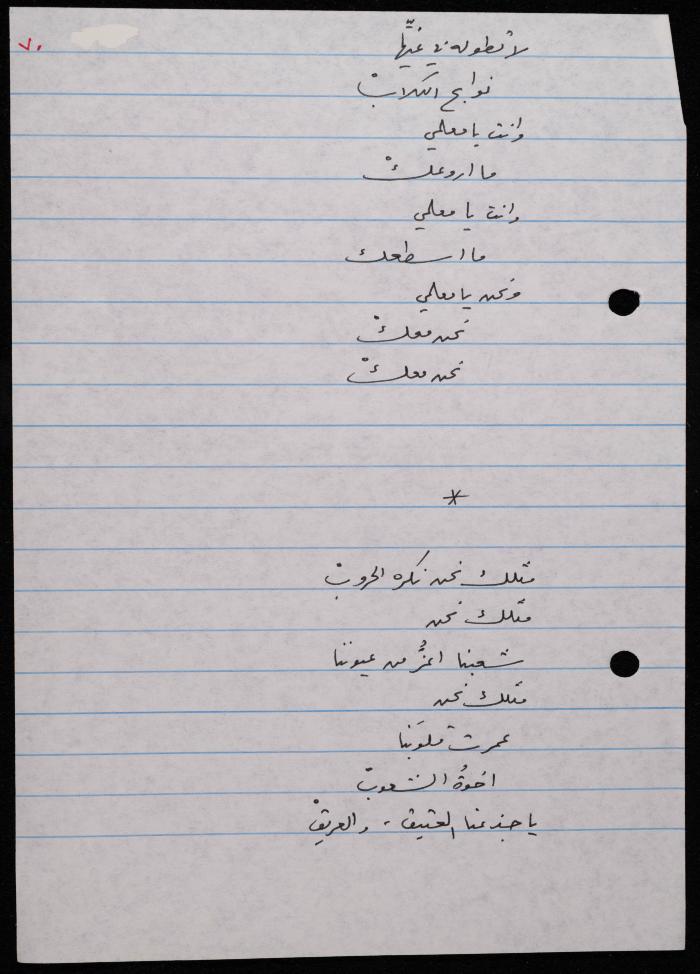 ٧٠
لا تطوله في غيّها
نوابح الكلابْ
وانت يا معلمي
ما اروعكْ
وانت يا معلمي
ما اسطعك
ونحن يا معلمي
نحن معكْ
نحن معكْ
*
مثلك نحن نكره الحروبْ
مثلك نحن
شعبنا اعزُّ من عيوننا
مثلك نحن
عمرت قلوبَنا
اخوةُ الشعوبْ
يا جذعنا العتيق، والعريقْ